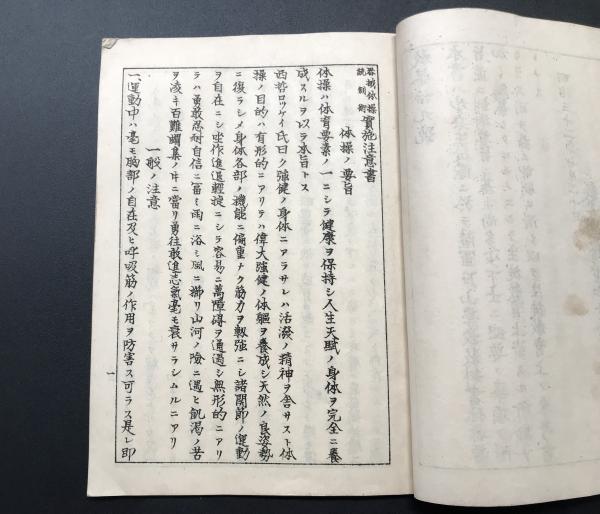 器械体操
銃剣術 實施注意書
体操ノ要旨
体操ハ体育要素ノ一ニシテ健康ヲ保持シ人生天賦ノ身体ヲ完全ニ養
成スルヲ以テ本旨トス
西哲ロツケイ氏曰ク強健ノ身体ニアラサレハ活溌ノ精神ヲ舎サスト体
操ノ目的ハ有形的ニアリテハ偉大強健ノ体軀ヲ養成シ天然ノ良姿勢
ニ復ラシメ身体各部ノ機能ニ偏重ナク筋力ヲ靱強ニシ諸関節ノ運動
ヲ自在ニシ坐作進退軽捷ニシテ容易ニ萬障碍ヲ通過シ無形的ニアリ
テハ勇敢忍耐自信ニ冨ミ雨ニ浴シ風ニ櫛リ山河ノ險ニ遇ヒ飢渇ノ苦
ヲ凌キ百難蝟集ノ時ニ當リ勇往敢進志氣毫モ衰サラシムルニアリ
一般ノ注意
一、運動中ハ毫モ胸部ノ自在及ヒ呼吸筋ノ作用ヲ防害ス可ラス是レ即
一